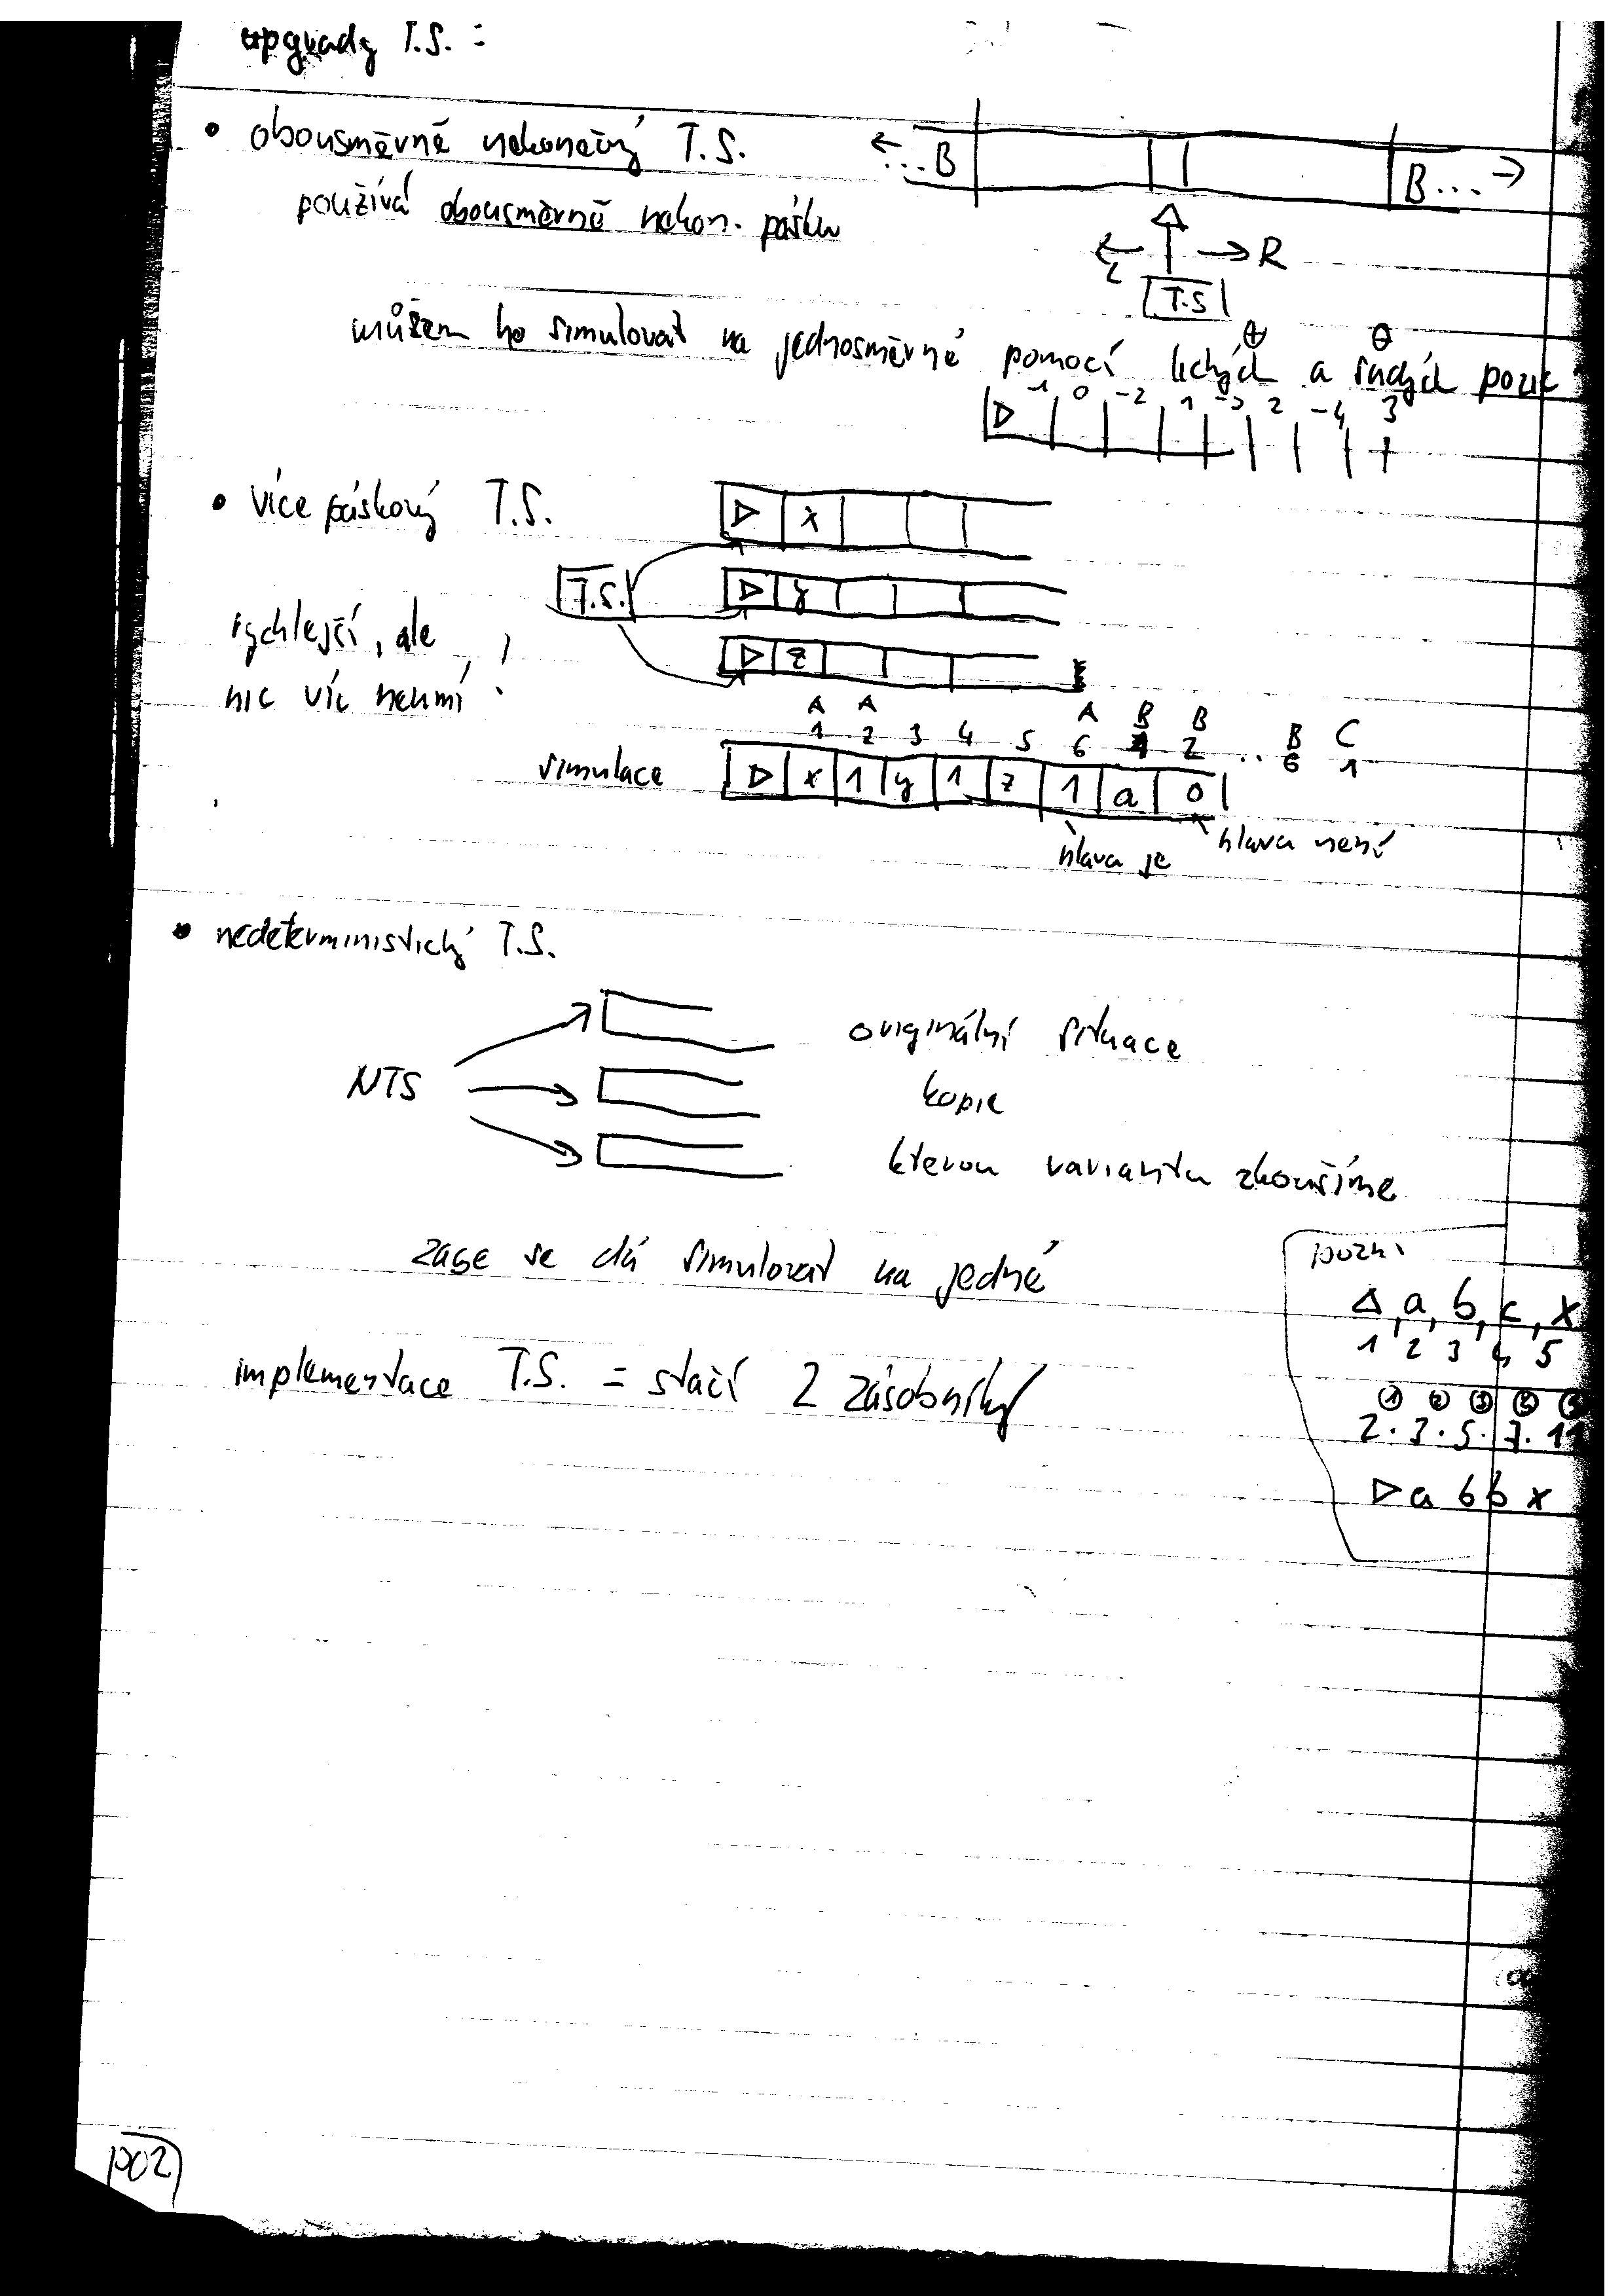 upgrady T.S. =
• obousměrně nekonečný T.S.
← ...B B... →
používá obousměrně nekon. pásku
← L → R
T.S
můžem ho simulovat na jednosměrné pomocí lichých a sudých pozic
⊕ ⊖
-1 0 -2 1 -3 2 -4 3
▷
• více páskový T.S.
▷ x
T.S.
▷ y
rychlejší, ale
▷ z
nic víc neumí!
A A A B B B C
1 2 3 4 5 6 1 2 .. 6 1
simulace ▷ x 1 y 1 z 1 a 0
hlava je hlava není
• nedeterministický T.S.
originální situace
NTS kopie
kterou variantu zkoušíme
zase se dá simulovat na jedné
pozn:
△, a, b, c, x
1 2 3 4 5
implementace T.S. = stačí 2 zásobníky
2 · 3 · 5 · 7 · 11
▷ a b b x
P02